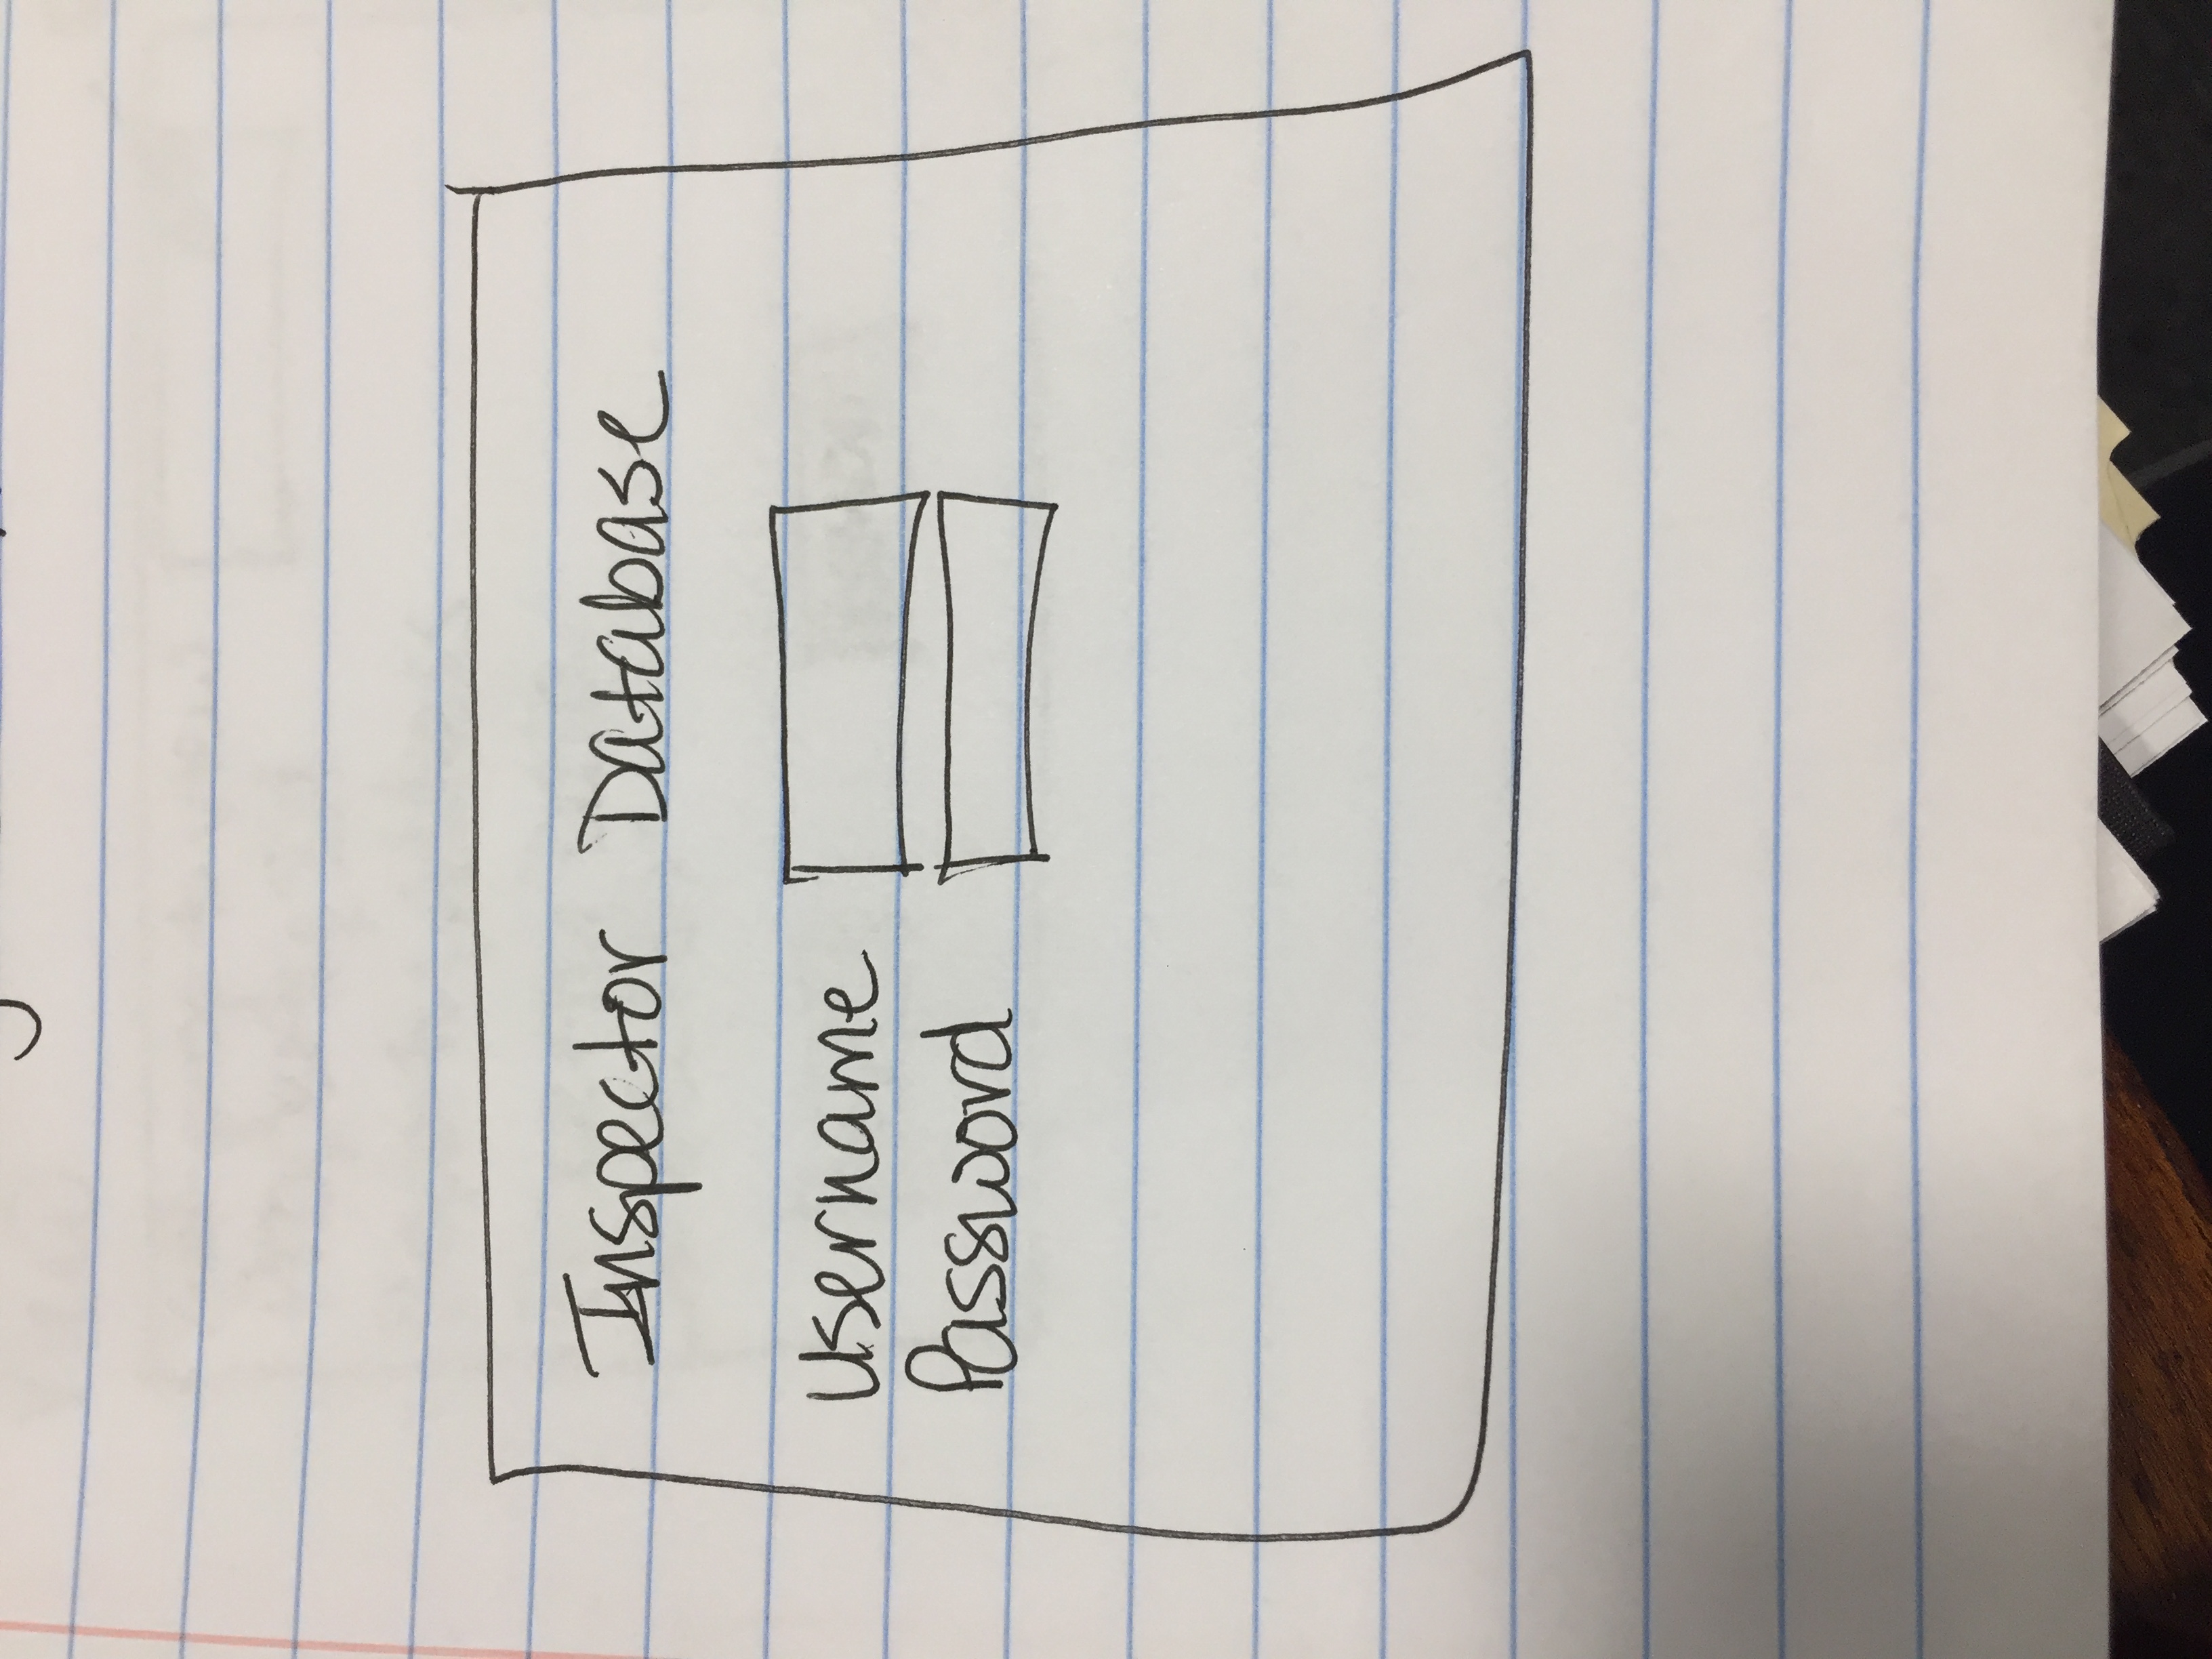 Inspector Database
Username
Password